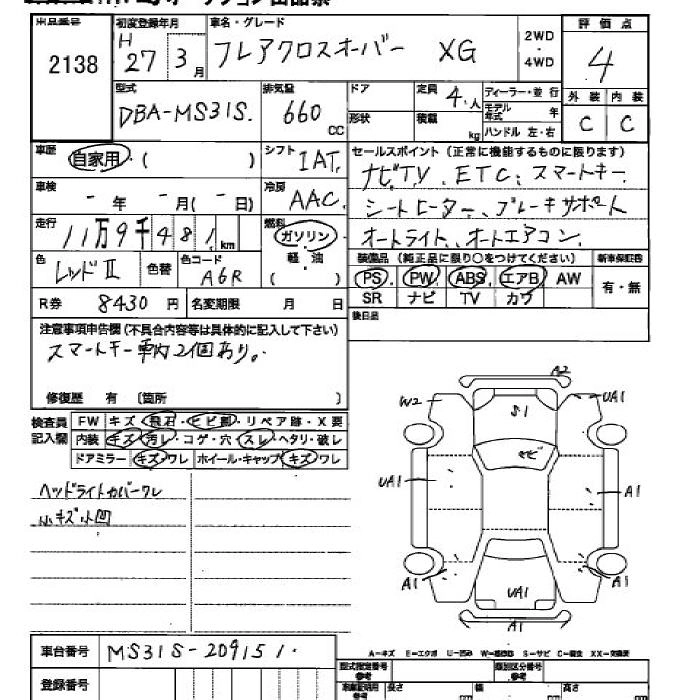 初度登録年月 車名・グレード 評価点
2138 H27 3月 フレアクロスオーバー XG 2WD・4WD 4
型式 排気量 ドア 定員 4人 ディーラー・並行 外装 内装
DBA-MS31S 660CC 形状 積載 kg モデル年式 年 ハンドル 左・右 C C
車歴 自家用・( ) シフト IAT セールスポイント(正常に機能するものに限ります)
ナビTV、ETC、スマートキー、
車検 - 年 - 月(- 日) 冷房 AAC
シートヒーター、ブレーキサポート
走行 11万9千481km 燃料 ガソリン・軽・油( )
オートライト、オートエアコン、
色 レッドⅡ 色替 色コード A6R 装備品(純正品に限り○をつけてください) 新車保証書
PS PW ABS エアB AW 有・無
SR ナビ TV カワ
R券 8430円 名変期限 月 日
後日品
注意事項申告欄(不具合内容等は具体的に記入して下さい)
スマートキー車内2個あり。
修復歴 有 〔箇所 〕
検査員記入欄 FW キズ・飛石・ヒビ割・リペア跡・X要
内装 キズ・汚レ・コゲ・穴・スレ・ヘタリ・破レ
ドアミラー キズ・ワレ ホイール・キャップ キズ・ワレ
ヘッドライトカバーワレ
小キズ小凹
A2
W2 S1 UA1
トビ
UA1 A1
A1 UA1 A1
A1
A-キズ E-エクボ U-凹み S-サビ
車台番号 MS31S-209151
登録番号
型式指定番号 類別区分番号
長さ 幅 高さ